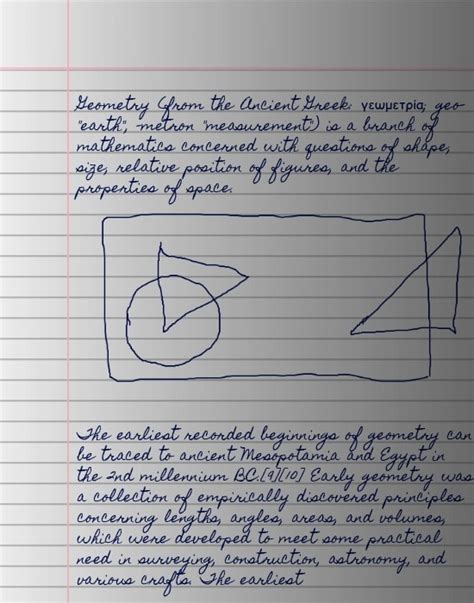 Geometry (from the Ancient Greek: γεωμετρία; geo-
"earth", -metron "measurement") is a branch of
mathematics concerned with questions of shape,
size, relative position of figures, and the
properties of space.
The earliest recorded beginnings of geometry can
be traced to ancient Mesopotamia and Egypt in
the 2nd millennium BC.[9][10] Early geometry was
a collection of empirically discovered principles
concerning lengths, angles, areas, and volumes,
which were developed to meet some practical
need in surveying, construction, astronomy, and
various crafts. The earliest